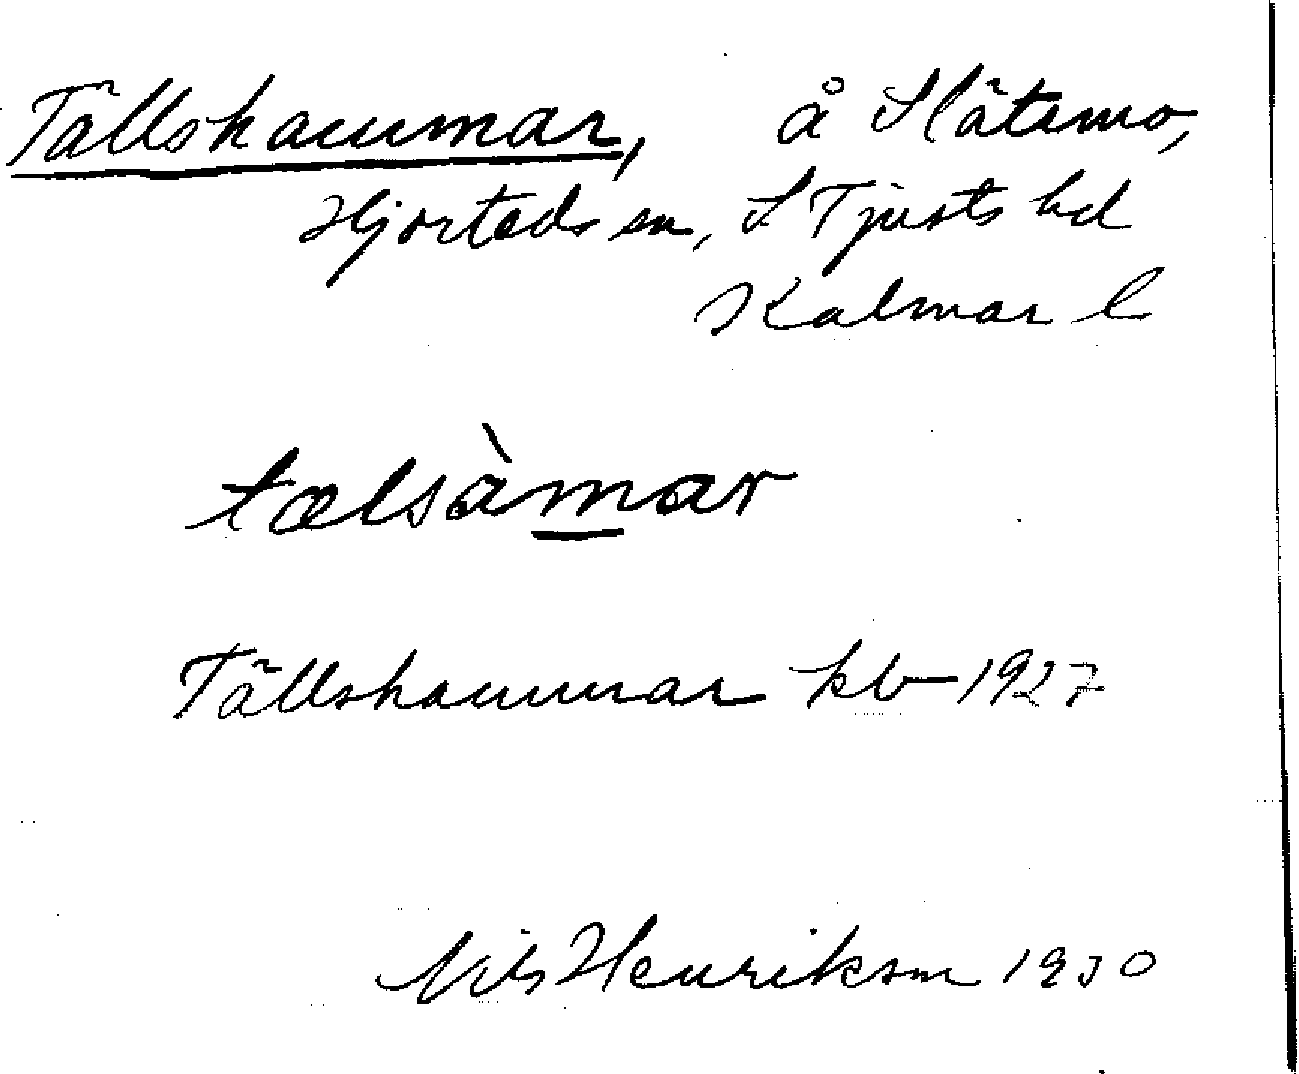 Tällshammar, å Slätemo,
Hjorteds sn, S Tjusts hd
Kalmar l
tælsàmar
Tällshammar kb 1927
Nils Henrikson 1930